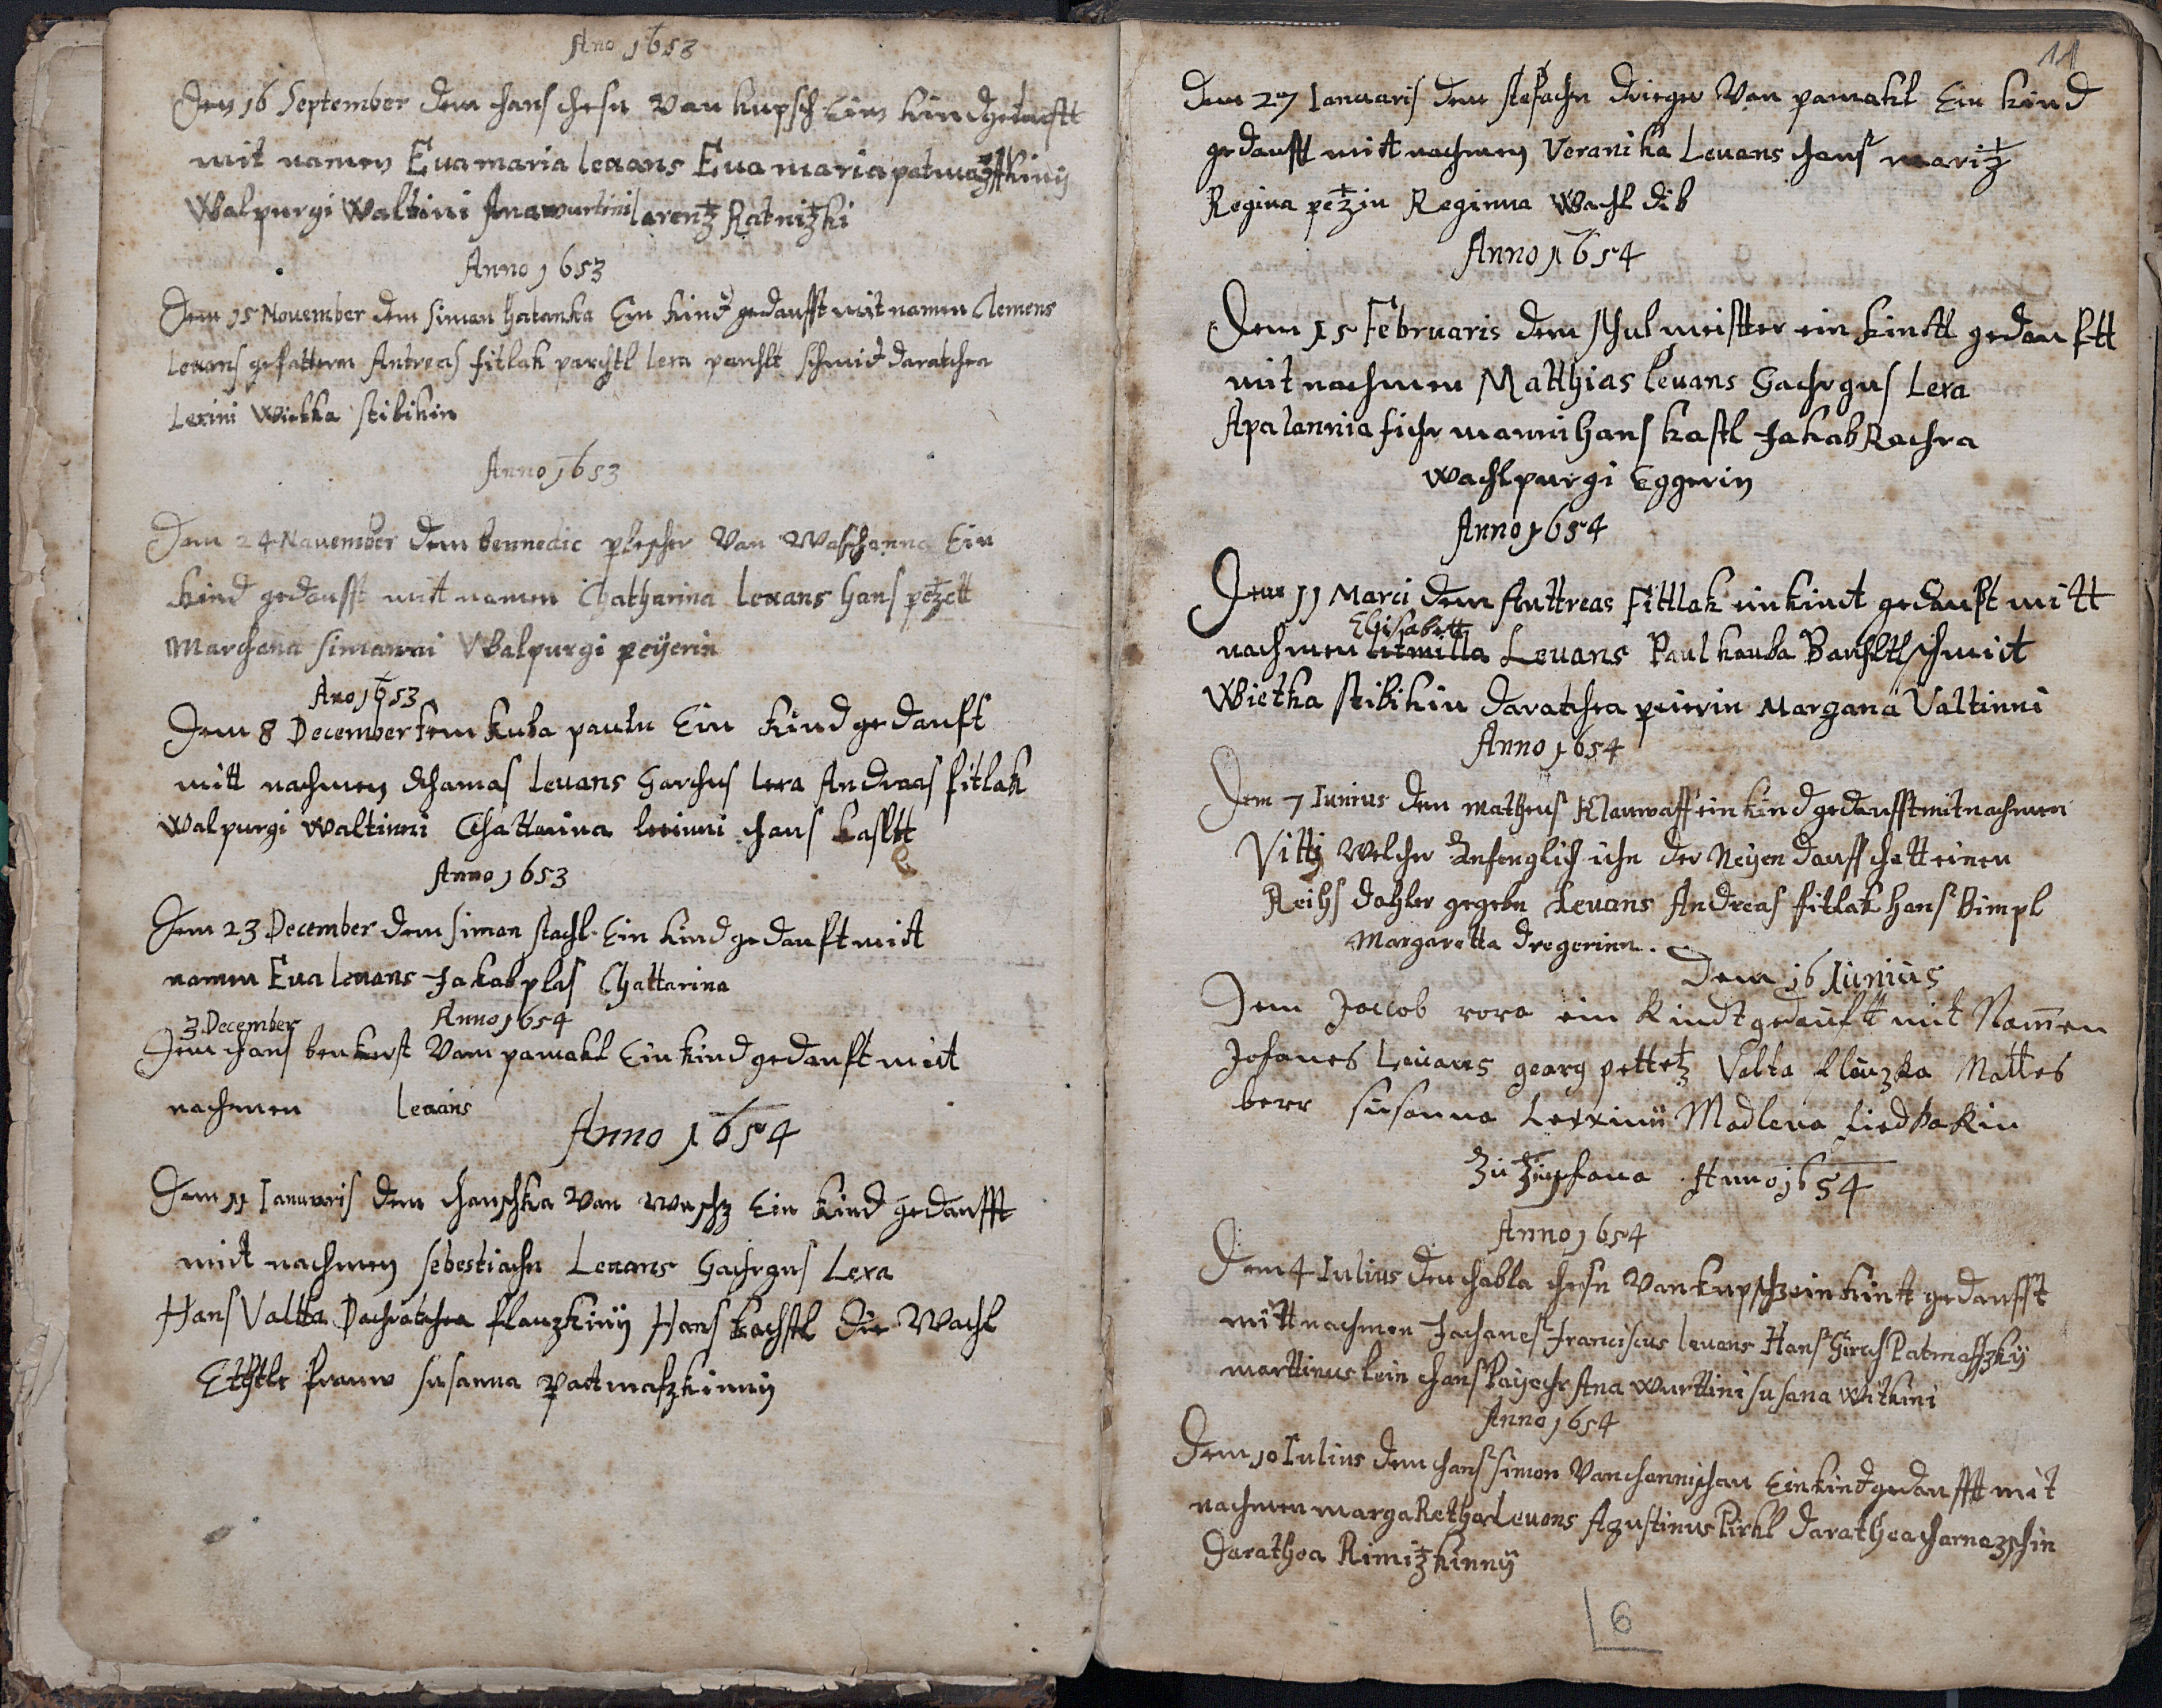 Ano 1653
Den 16 September dem chans chesn van kupsch Ein kind gedaufft
mit namen Euamaria leuans Eua maria patmaszkiny
Walpurgi Waltini Anawurtini larentz Ratnitzki
Anno 1653
Dem 15 Nouember dem siman hatanka Ein kind gedaufft mit namen Clemens
Leuans gefattern Antreas fitlak parchtl lexa parchlt schmid daratchea
Lexini Wietka stibikin
Anno 1653
Dem 24 Nauember dem bennedic plescher van Waschanna Ein
kind gedaufft mit namen Chatharina Leuans hans petzelt
Marchana simanni Walpurgi peyerin
Ano 1653
Dem 8 December tem kuba pauln Ein kind gedauft
mitt nachmen thamas Leuans Garchus lexa Andraas fitlak
Walpurgi Waltinni Chattarina lexinni chans kastl
Anno 1653
Dem 23 December dem siman stachl Ein kind gedauft mitt
namen Eua leuans Jakab plas Chattarina
3 December Anno 1654
Dem chans benkerst Vam pamakl Ein kind gedauft mit
nachmen leuans
Anno 1654
Dem 11 Januaris dem chanschka Van Waschz Ein kind gedaufft
mit nachmen sebestiachn Leuans Gachrgus Lexa
Hans Valtta Dachratchea flauzkiny Hans kachstl Die Wachl
frauw susanna patmaszkinny
11
Dem 27 Januaris dem stefachn drieger Van pamakl Ein kind
gedaufft mit nachmen Veranika Leuans chans maritz
Regina petzin Reginna Wachl dib
Anno 1654
Dem 15 Februaris dem schulmeistter ein kintt gedaufftt
mit nachmen Matthias leuans Gachrgus Lexa
Apalannia fichrmanni Hans kastl Jakab Rachra
Wachlpurgi Eggerin
Anno 1654
Dem 11 Marci dem Anttreas Fittlak ein kint gedauft mitt
Elisabett
nachmen litmilla Leuans Paul kauba Barchltl schmit
Wietka stibikin daratchea peierin Margana Valtinni
Anno 1654
Dem 7 Iunius dem matheus Klauwaff ein kind gedaufft mit nachmen
Vitty Welcher Anfenglich ihn der Neyen dauff chatt einen
Reihs dahler gegebn Leuans Andreas fitlak Hans Bimpl
Margaretta dregerinn.
Dem 16 Iunius
Dem Jacob rora ein kindt gedaufft mit Namen
Johanes Leuans georg pettetz Valta klauzka Mattes
berr susanna Lexxinÿ Madlena liedbakin
Zu Anno 1654
Anno 1654
Dem 4 Iulius dem chabla chesn Van kupsch ein kintt gedaufft
mitt nachmen Jachanes franciscus leuans Hans Girch Patmaszky
marttinus lein chans payechr Ana wurttini susana witkini
Anno 1654
Dem 10 Iulius dem chans simon Van channischau Ein kind gedaufft mit
nachmen margaRetha Leuans Agustinus Pirkl daratheacharnazschin
Darathea Rimitzkinny
6